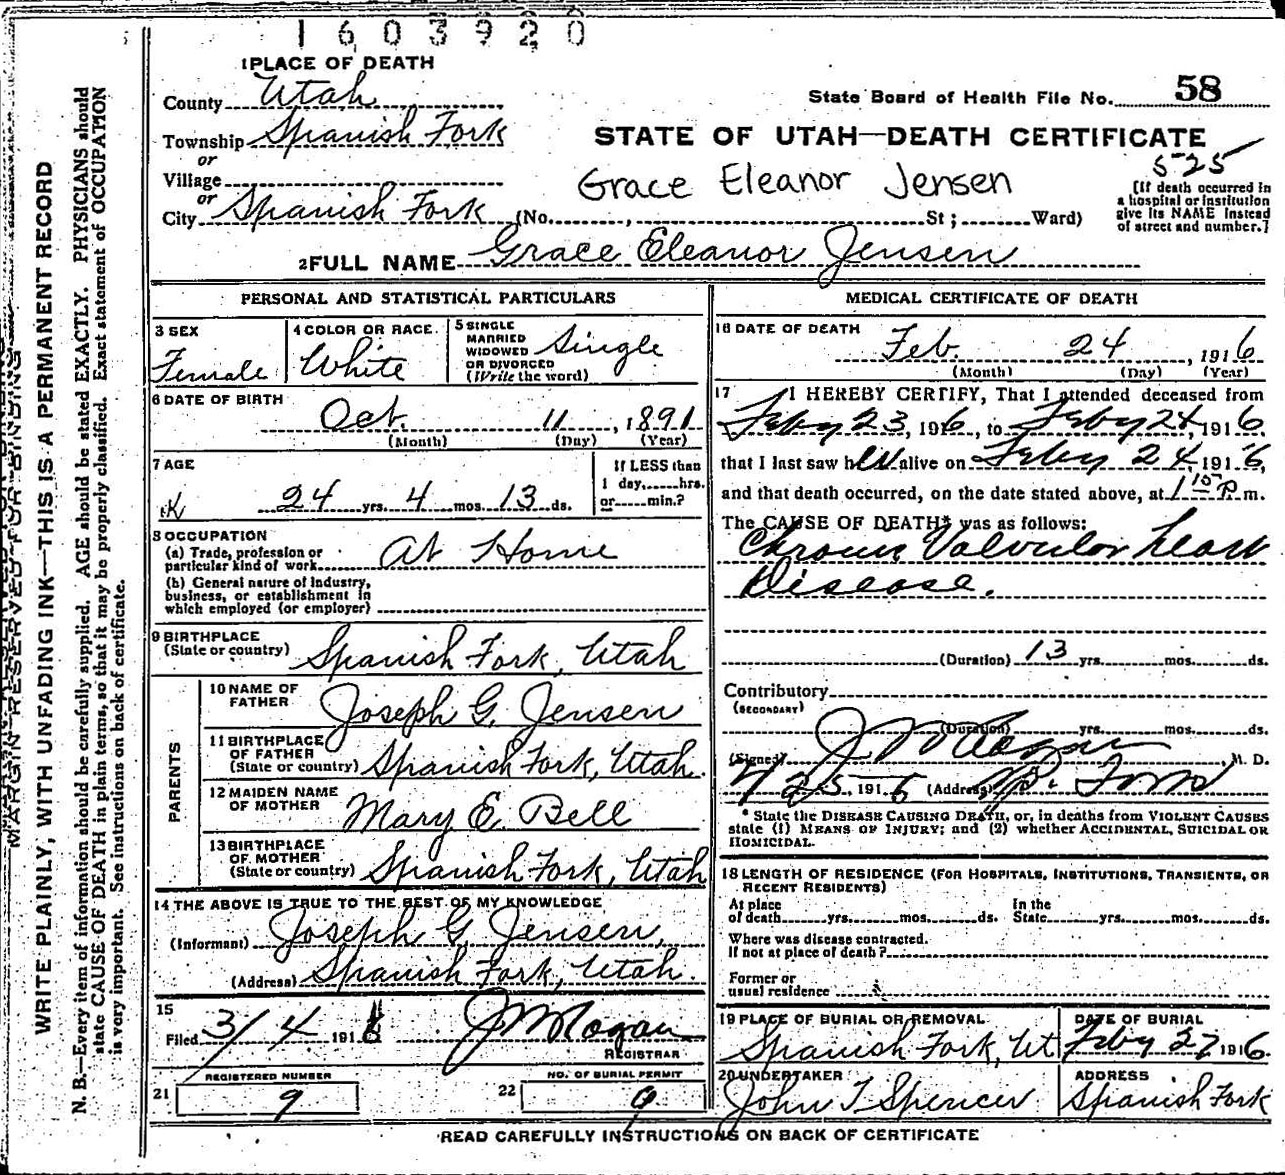 1603920
1 PLACE OF DEATH
County Utah
State Board of Health File No. 58
Township Spanish Fork
or
STATE OF UTAH—DEATH CERTIFICATE
525
Village
or
Grace Eleanor Jensen
City Spanish Fork (No. , St ; Ward)
[If death occurred in
a hospital or institution
give its NAME instead
of street and number.]
2 FULL NAME Grace Eleanor Jensen
PERSONAL AND STATISTICAL PARTICULARS
3 SEX
Female
4 COLOR OR RACE.
White
5 SINGLE
MARRIED
WIDOWED
OR DIVORCED
(Write the word)
Single
6 DATE OF BIRTH
Oct. 11, 1891
(Month) (Day) (Year)
7 AGE
24 yrs. 4 mos. 13 ds.
If LESS than
1 day, hrs.
or min.?
8 OCCUPATION
(a) Trade, profession or
particular kind of work At Home
(b) General nature of Industry,
business, or establishment in
which employed (or employer)
9 BIRTHPLACE
(State or country) Spanish Fork, Utah
PARENTS
10 NAME OF
FATHER Joseph G. Jensen
11 BIRTHPLACE
OF FATHER
(State or country) Spanish Fork, Utah.
12 MAIDEN NAME
OF MOTHER Mary E. Bell
13 BIRTHPLACE
OF MOTHER
(State or country) Spanish Fork, Utah
14 THE ABOVE IS TRUE TO THE BEST OF MY KNOWLEDGE
(Informant) Joseph G. Jensen,
(Address) Spanish Fork, Utah.
15
Filed 3/4 1916
REGISTRAR
REGISTERED NUMBER
21 9
NO. OF BURIAL PERMIT
22 9
MEDICAL CERTIFICATE OF DEATH
16 DATE OF DEATH
Feb. 24, 1916
(Month) (Day) (Year)
17 I HEREBY CERTIFY, That I attended deceased from
Feby 23, 1916, to Feby 24, 1916
that I last saw her alive on Feby 24, 1916,
and that death occurred, on the date stated above, at 1 15 P. m.
The CAUSE OF DEATH* was as follows:
Chronic Valvular heart
Disease.
(Duration) 13 yrs. mos. ds.
Contributory
(SECONDARY)
(Duration) yrs. mos. ds.
(Signed) , M. D.
25, 1916 (Address) Sp. Fork
* State the DISEASE CAUSING DEATH, or, in deaths from VIOLENT CAUSES
state (1) MEANS OF INJURY; and (2) whether ACCIDENTAL, SUICIDAL OR
HOMICIDAL.
18 LENGTH OF RESIDENCE (FOR HOSPITALS, INSTITUTIONS, TRANSIENTS, OR
RECENT RESIDENTS)
At place
of death yrs. mos. ds.
In the
State yrs. mos. ds.
Where was disease contracted.
If not at place of death?
Former or
usual residence
19 PLACE OF BURIAL OR REMOVAL
Spanish Fork, Ut
DATE OF BURIAL
Feby 27, 1916.
20 UNDERTAKER
John T Spencer
ADDRESS
Spanish Fork
READ CAREFULLY INSTRUCTIONS ON BACK OF CERTIFICATE
MARGIN RESERVED FOR BINDING
WRITE PLAINLY, WITH UNFADING INK—THIS IS A PERMANENT RECORD
N. B.—Every item of information should be carefully supplied. AGE should be stated EXACTLY. PHYSICIANS should
state CAUSE OF DEATH in plain terms, so that it may be properly classified. Exact statement of OCCUPATION
is very important. See instructions on back of certificate.